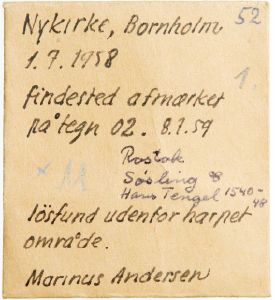 52
Nykirke, Bornholm
1.7.1958
1.
findested afmærket
på tegn 02. 8.1.59
Rostok
Søsling
Hans Tengel 1540-
48
løsfund udenfor harpet
område.
Marinus Andersen